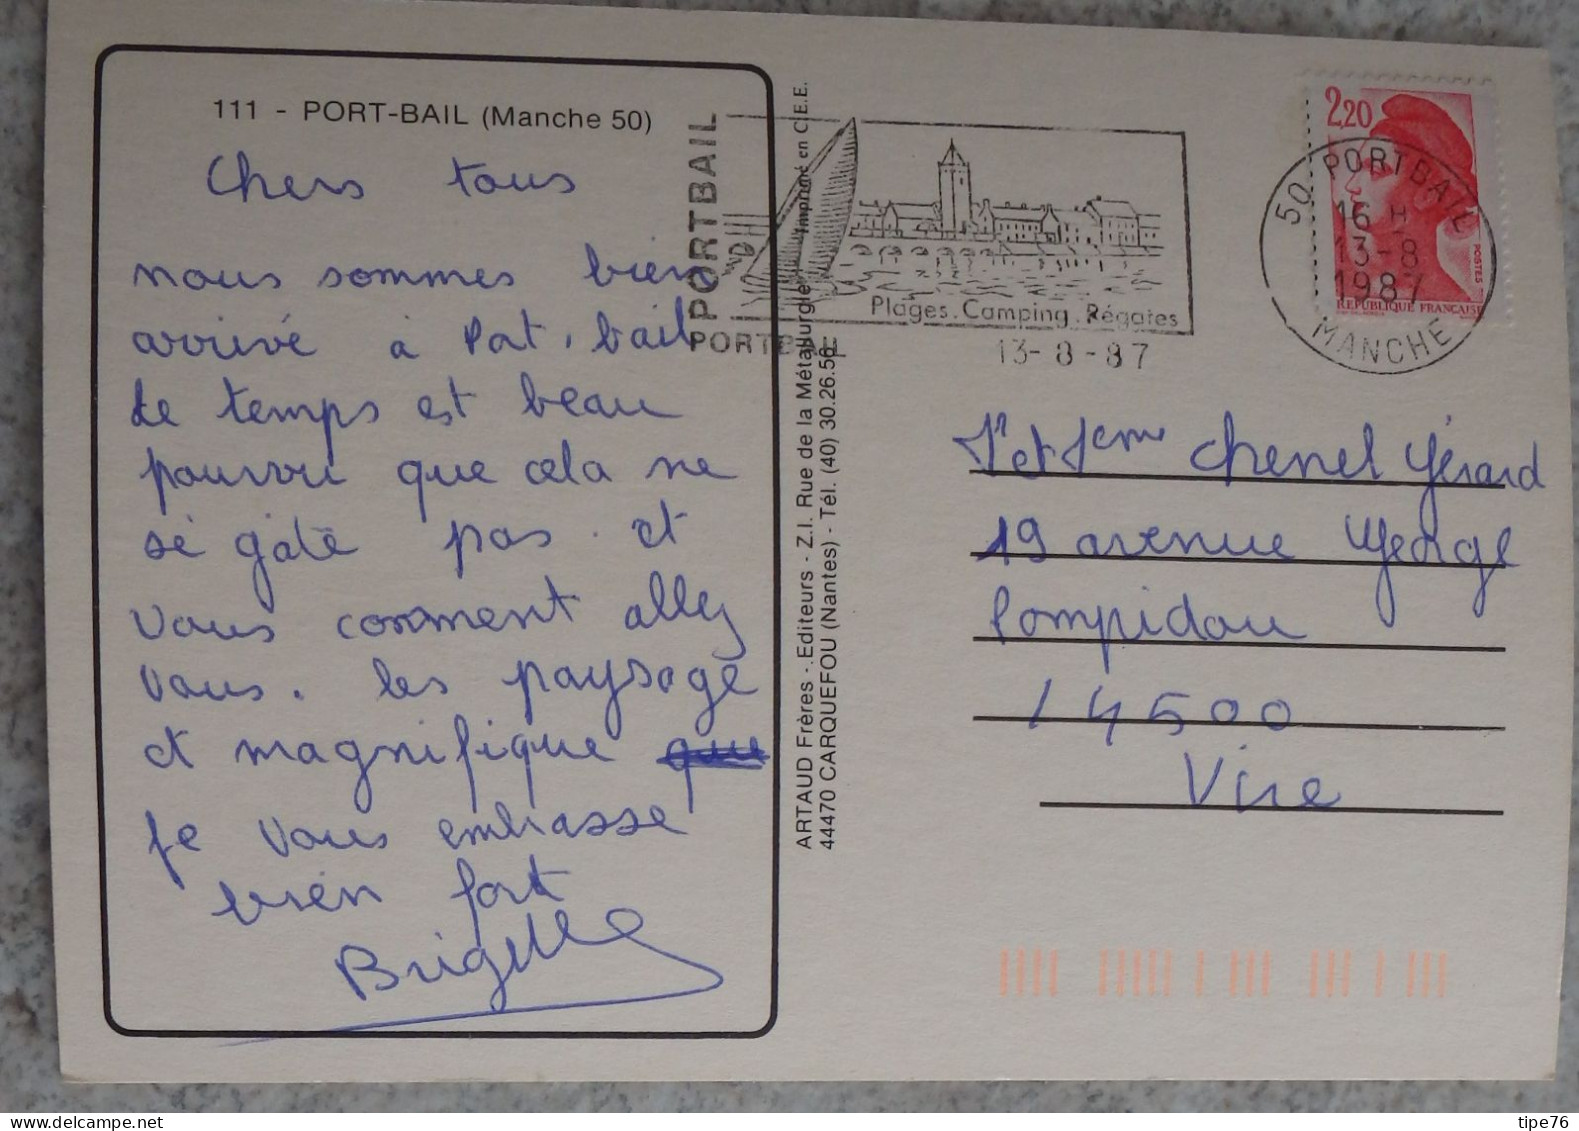 111 - PORT-BAIL (Manche 50)
Chers tous
nous sommes bien
arrivé à Port. bail
Le temps est beau
pourvu que cela ne
se gâte pas. et
vous comment allez
vous. les paysage
et magnifique
je vous embrasse
bien fort
Brigitte
ARTAUD Frères - Editeurs - Z.I. Rue de la Métallurgie Imprimé en C.E.E.
44470 CARQUEFOU (Nantes) - Tél. (40) 30.26.56
PORTBAIL
PORTBAIL
Plages. Camping. Régates
13-8-87
2,20
POSTES
REPUBLIQUE FRANCAISE
50 PORTBAIL
16 H
13-8
1987
MANCHE
Mr et Mme Chenel Gérard
19 avenue George
Pompidou
14500
Vire
tipe76